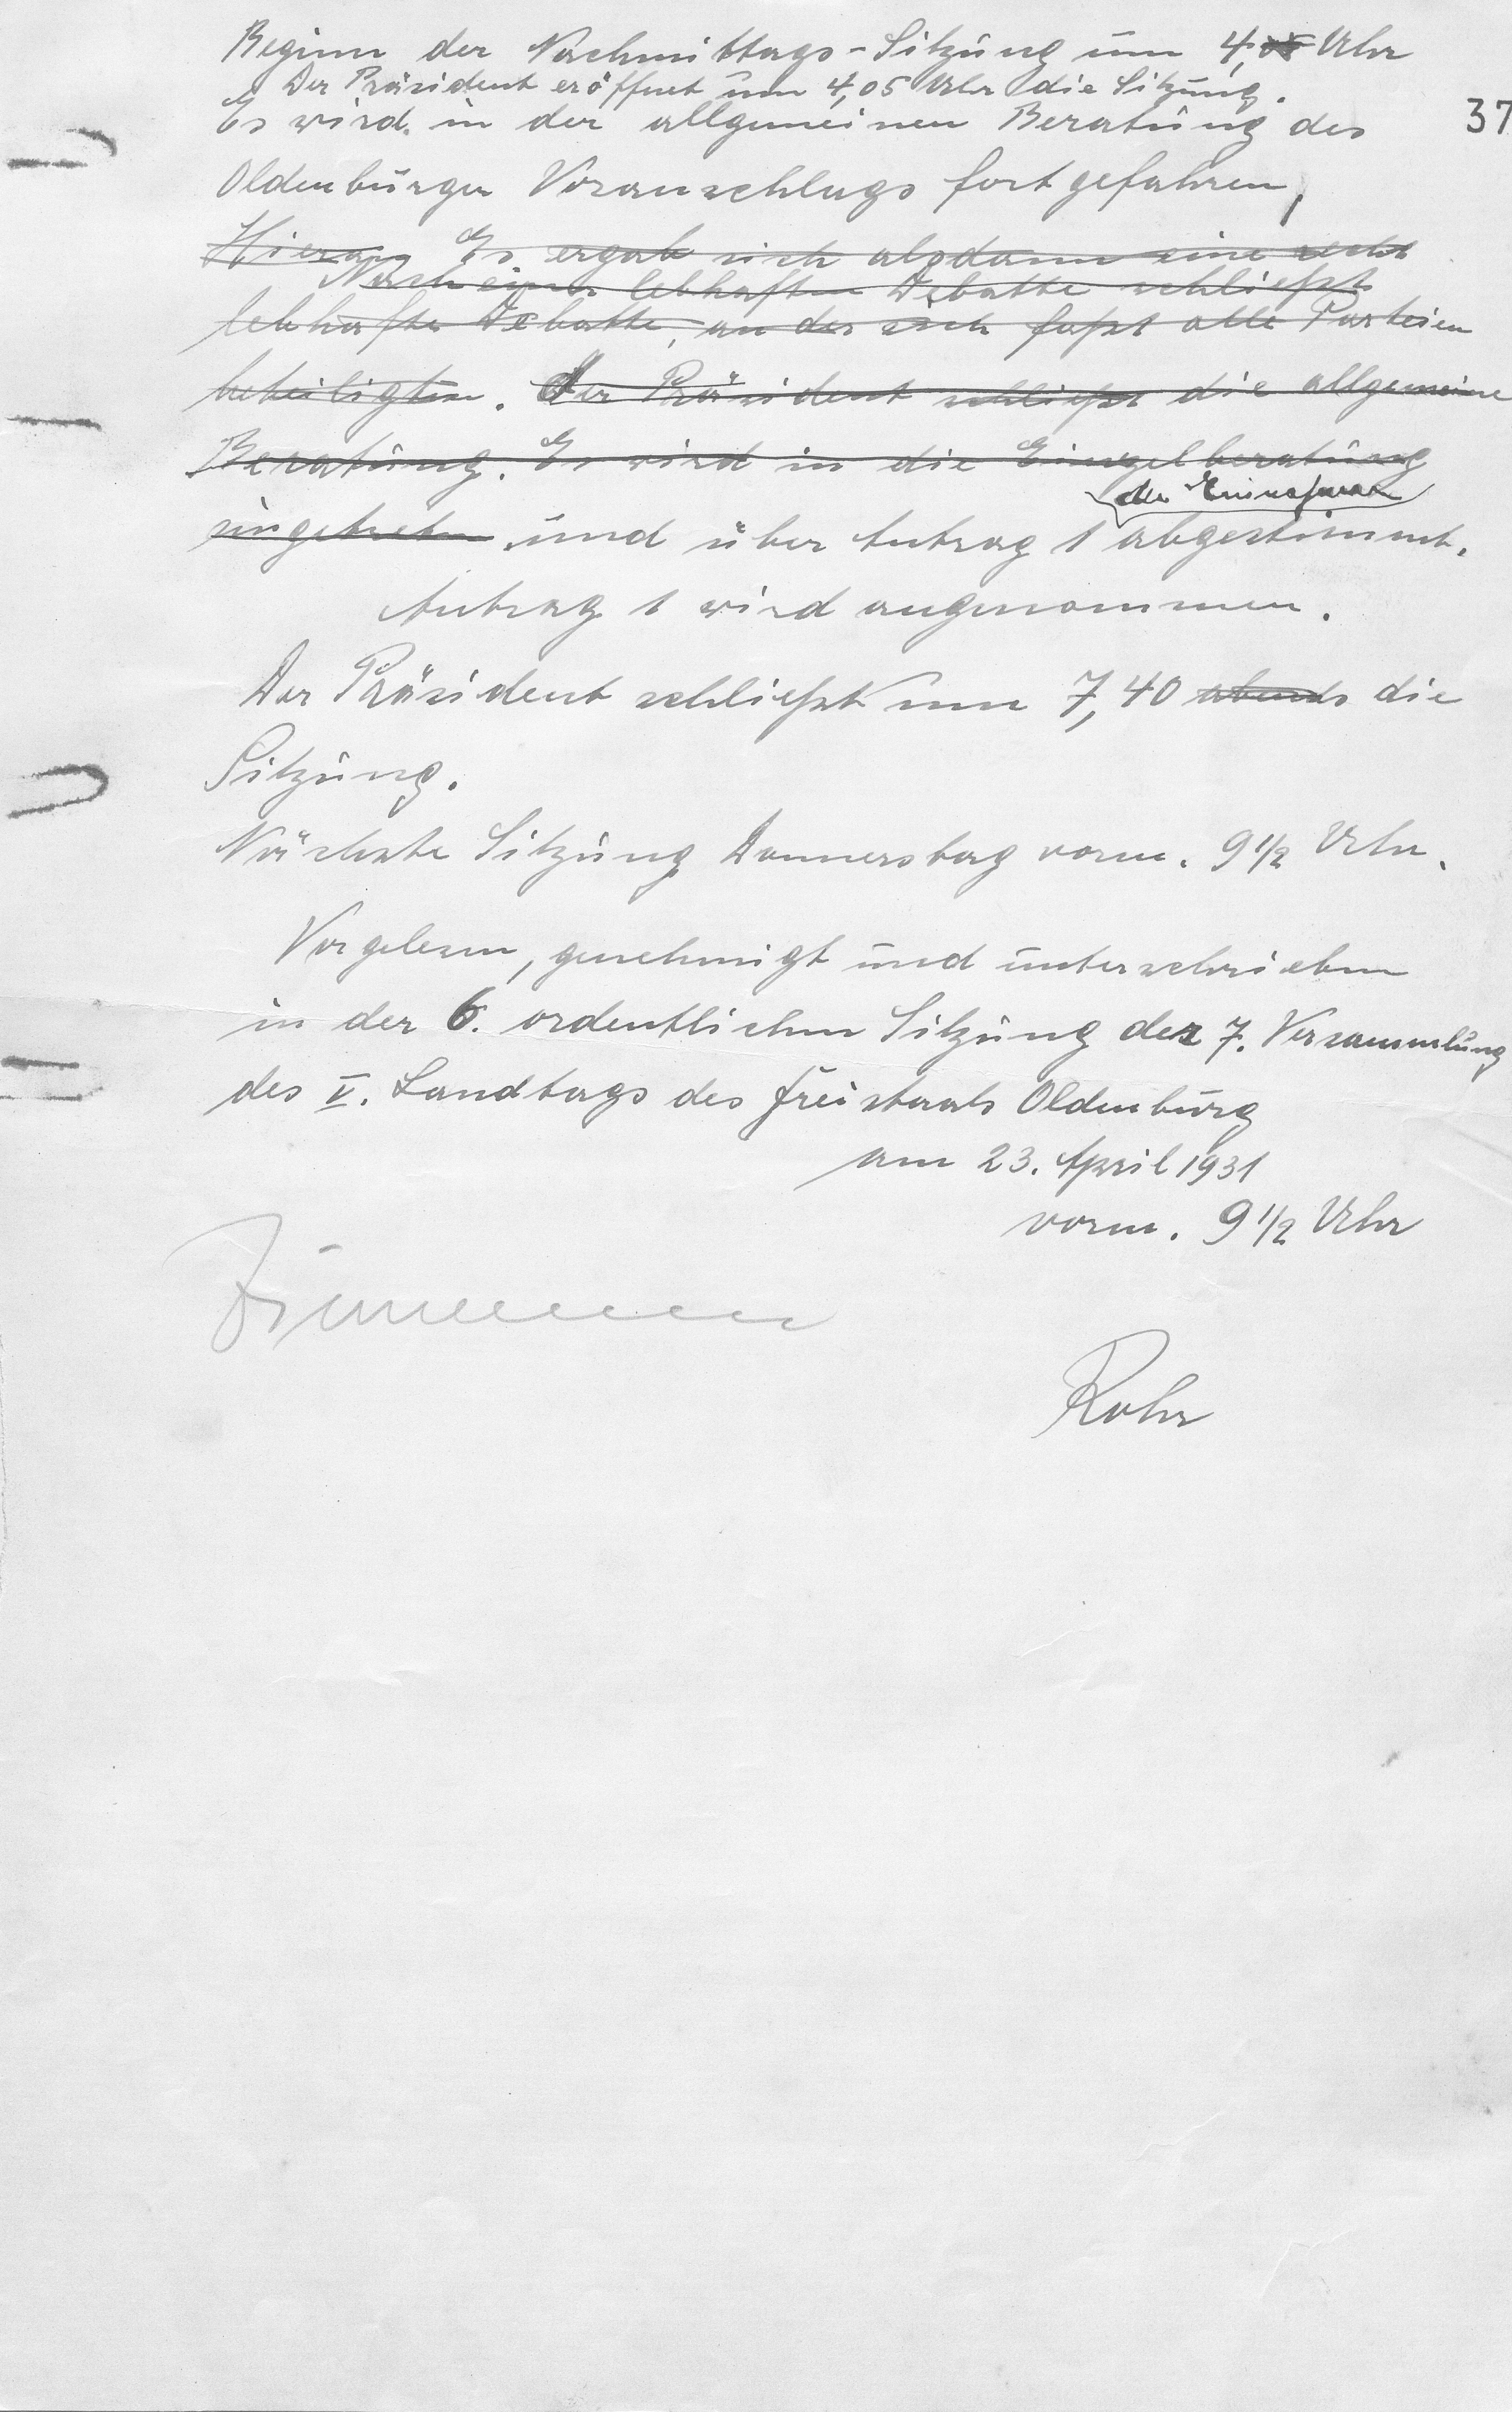 Beginn der Nachmittags-Sitzung um 4, Uhr
Der Präsident eröffnet um 4,05 Uhr die Sitzung.
37
Es wird in der allgemeinen Beratung des
Oldenburger Voranschlags fortgefahren,
Hierau Es ergab sich alsdann eine recht
Nach einer lebhaften Debatte schließt
lebhafte Debatte, an der sich faßt alle Parteien
beteiligten. Der Präsident schließt die allgemeine
Beratung. Es wird in die Einzelberatung
der Einnahmen
eingetreten und über Antrag 1 abgestimmt.
Antrag 1 wird angenommen.
Der Präsident schließt um 7,40 abends die
Sitzung.
Nächste Sitzung Donnerstag vorm. 9 1/2 Uhr.
Vorgelesen, genehmigt und unterschrieben
in der 6. ordentlichen Sitzung der 7. Versammlung
des V. Landtags des Freistaats Oldenburg
am 23. April 1931
vorm. 9 1/2 Uhr
Rohr